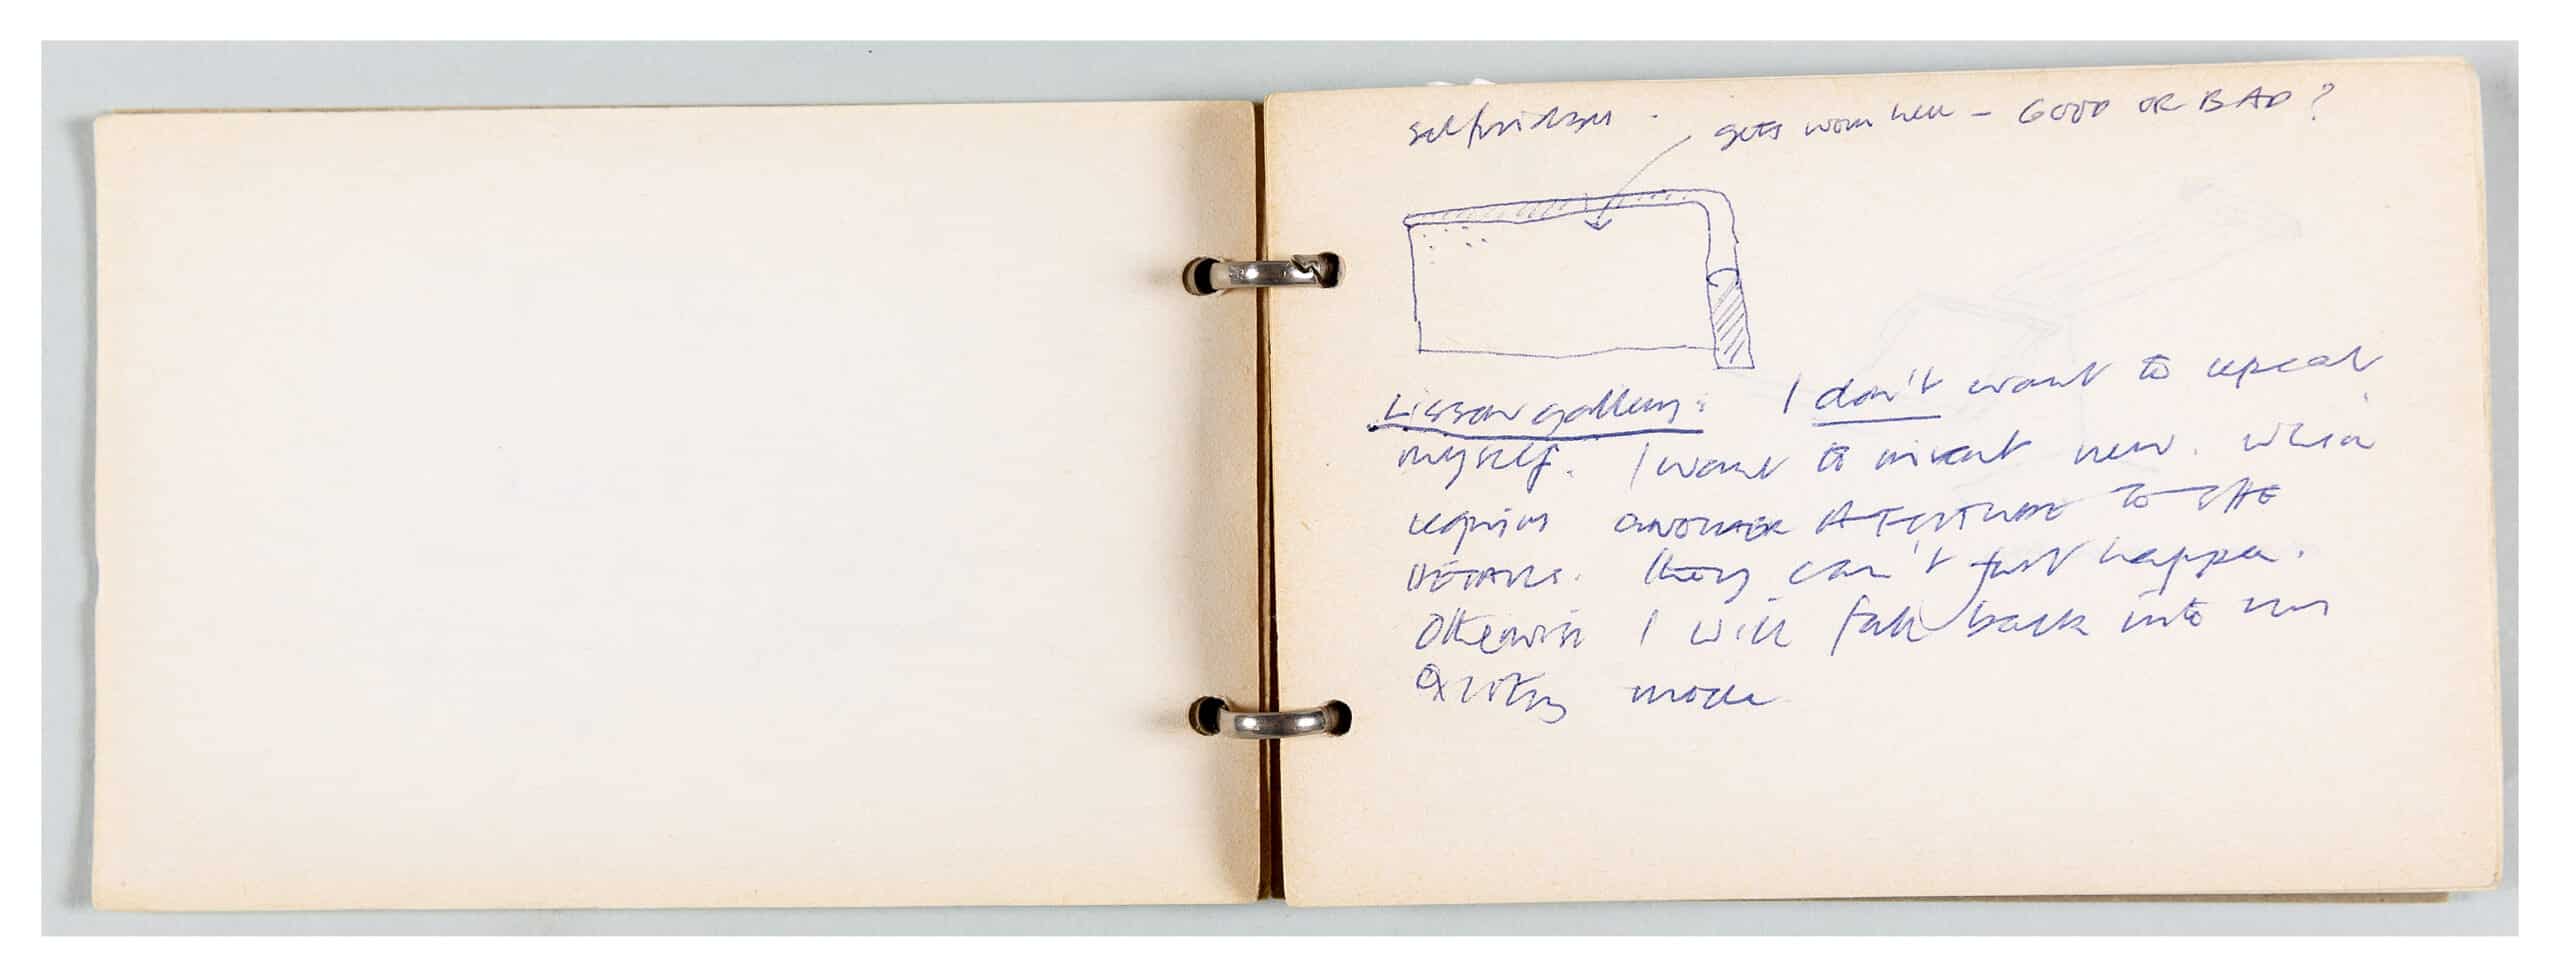 selfridges.
gets worn here – GOOD OR BAD?
Lisson gallery: I don't want to repeat
myself. I want to invent new. which
requires ANOTHER ATTITUDE TO THE
DETAILS. they can't just happen.
Otherwise I will fall back into
mode